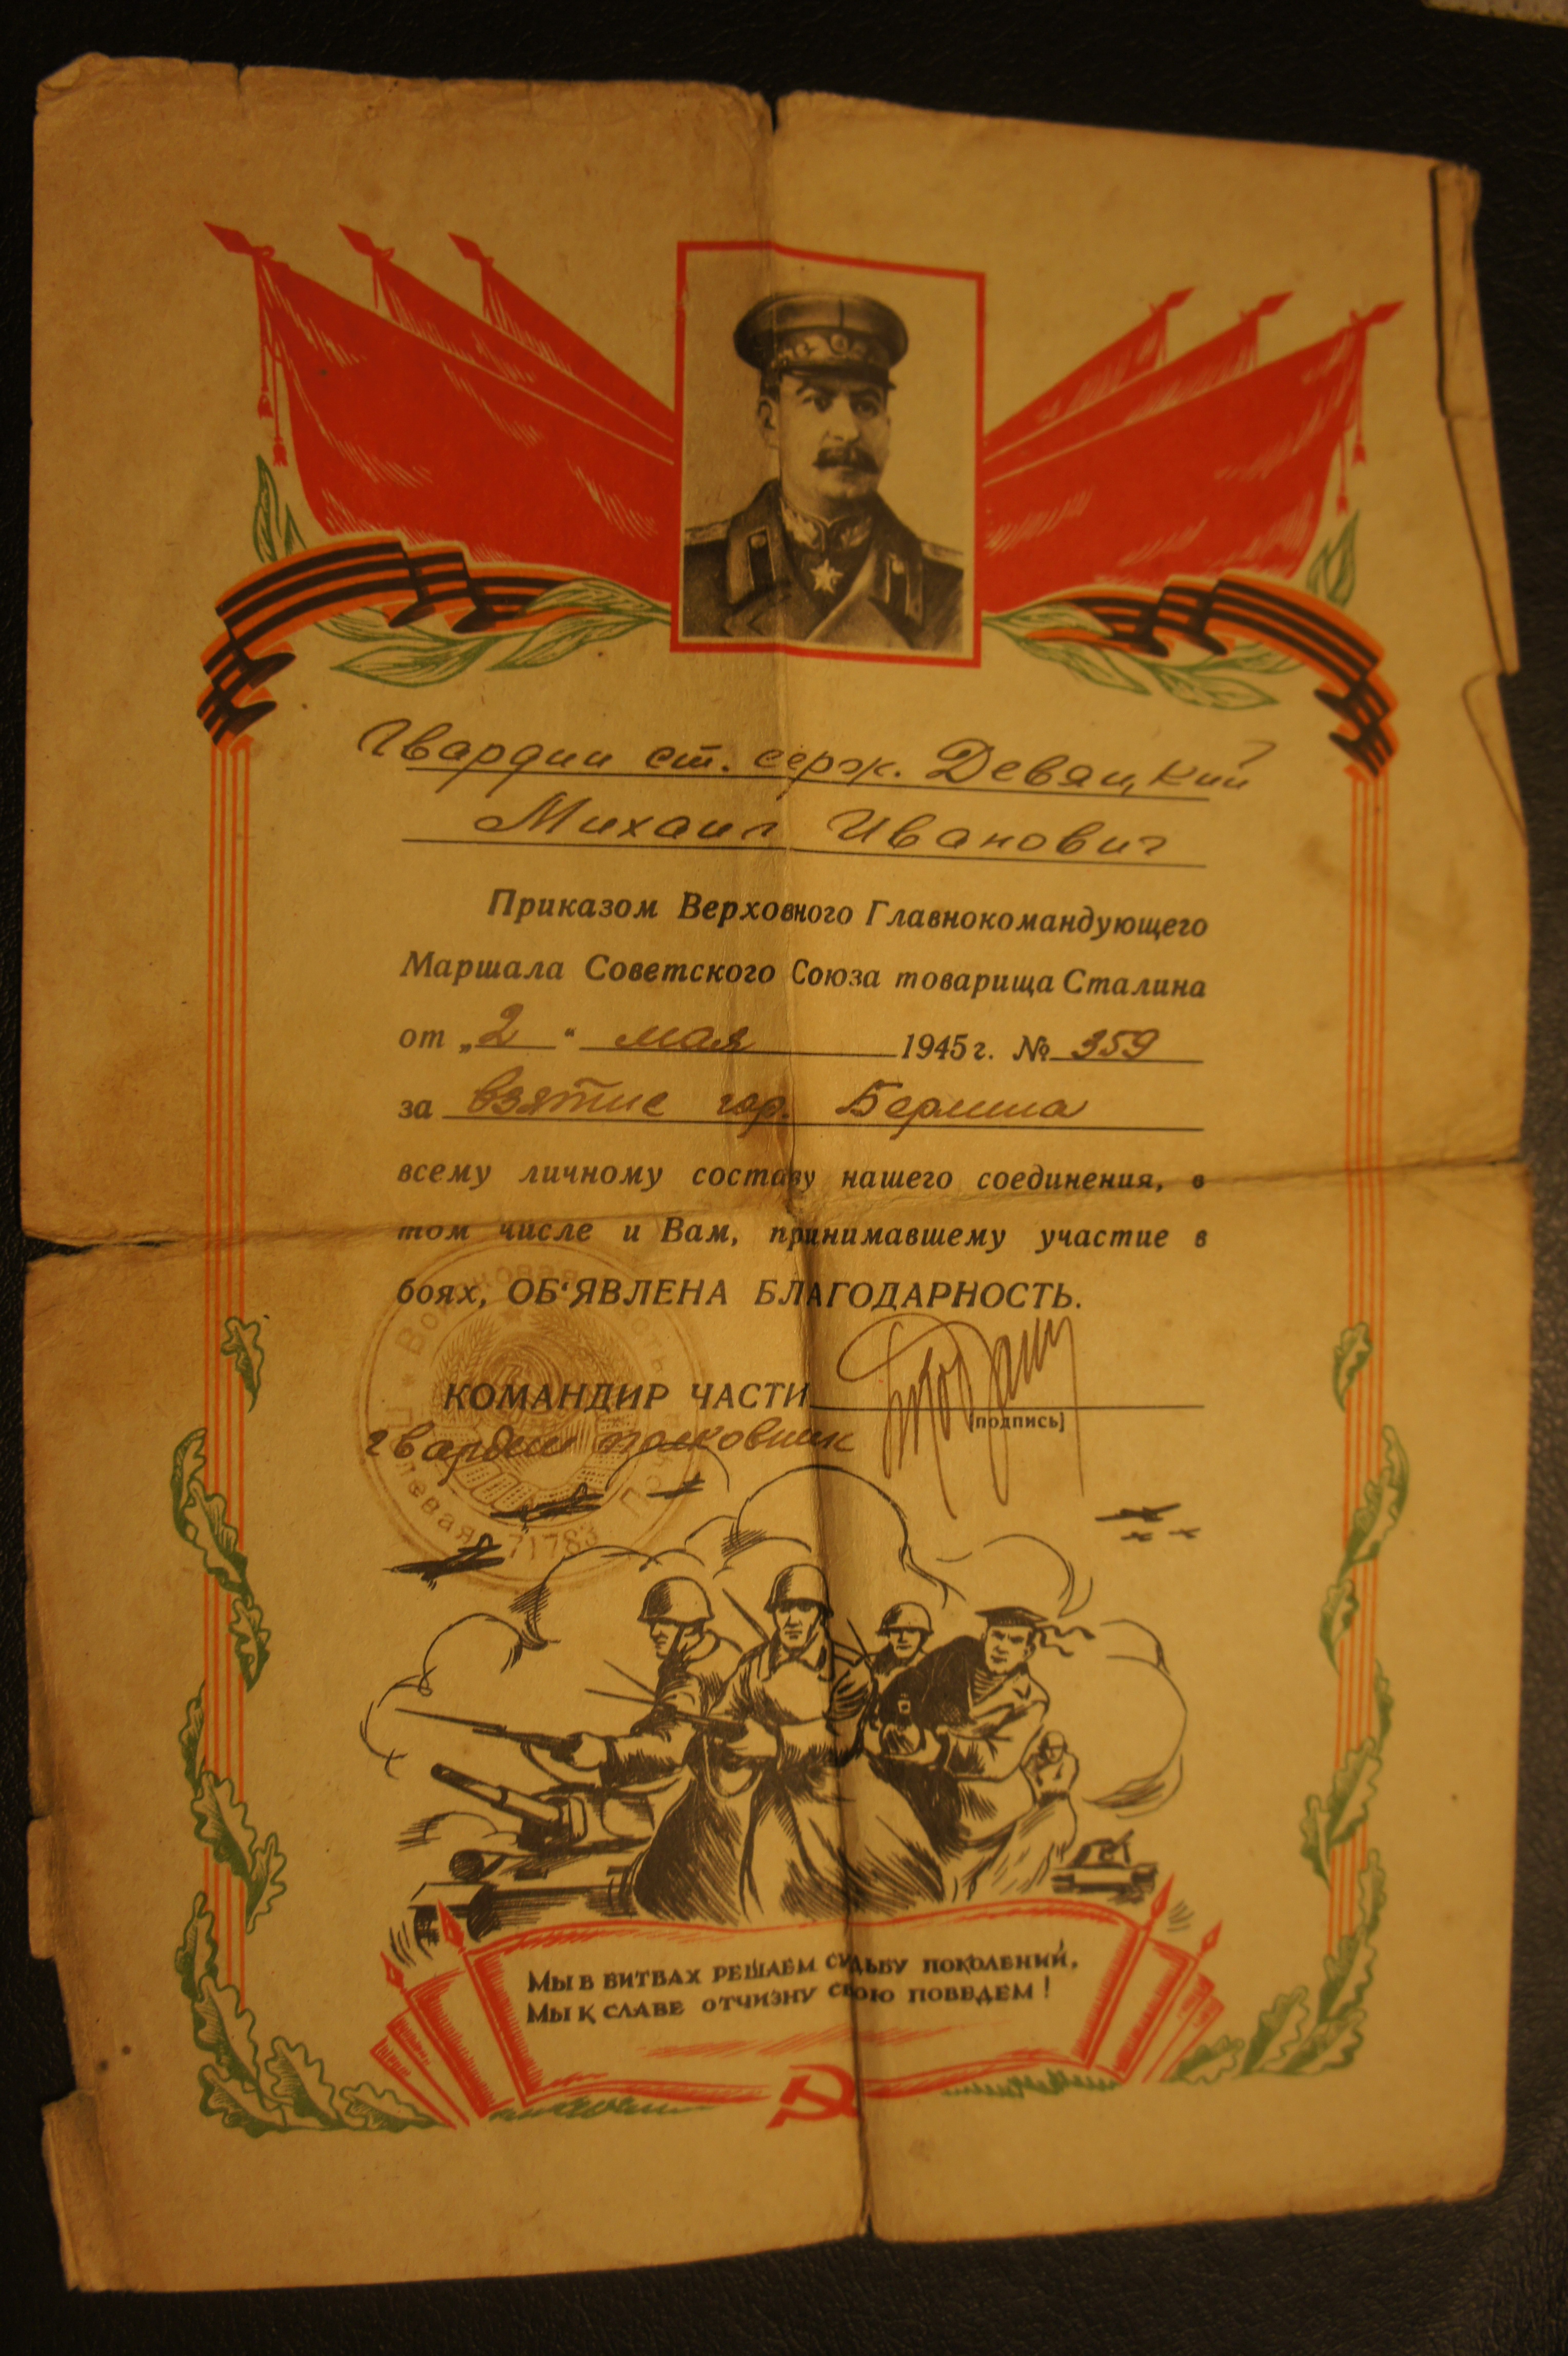 Гвардии ст. серж. Девяцкий
Михаил Иванович
Приказом Верховного Главнокомандующего
Маршала Советского Союза товарища Сталина
от „2“ мая 1945 г. № 359
за взятие гор. Берлина
всему личному составу нашего соединения, в
том числе и Вам, принимавшему участие в
боях, ОБ‘ЯВЛЕНА БЛАГОДАРНОСТЬ.
КОМАНДИР ЧАСТИ
(подпись)
гвардии полковник
Войсковая часть
Полевая почта
71783
МЫ В БИТВАХ РЕШАЕМ СУДЬБУ ПОКОЛЕНИЙ,
МЫ К СЛАВЕ ОТЧИЗНУ СВОЮ ПОВЕДЕМ!